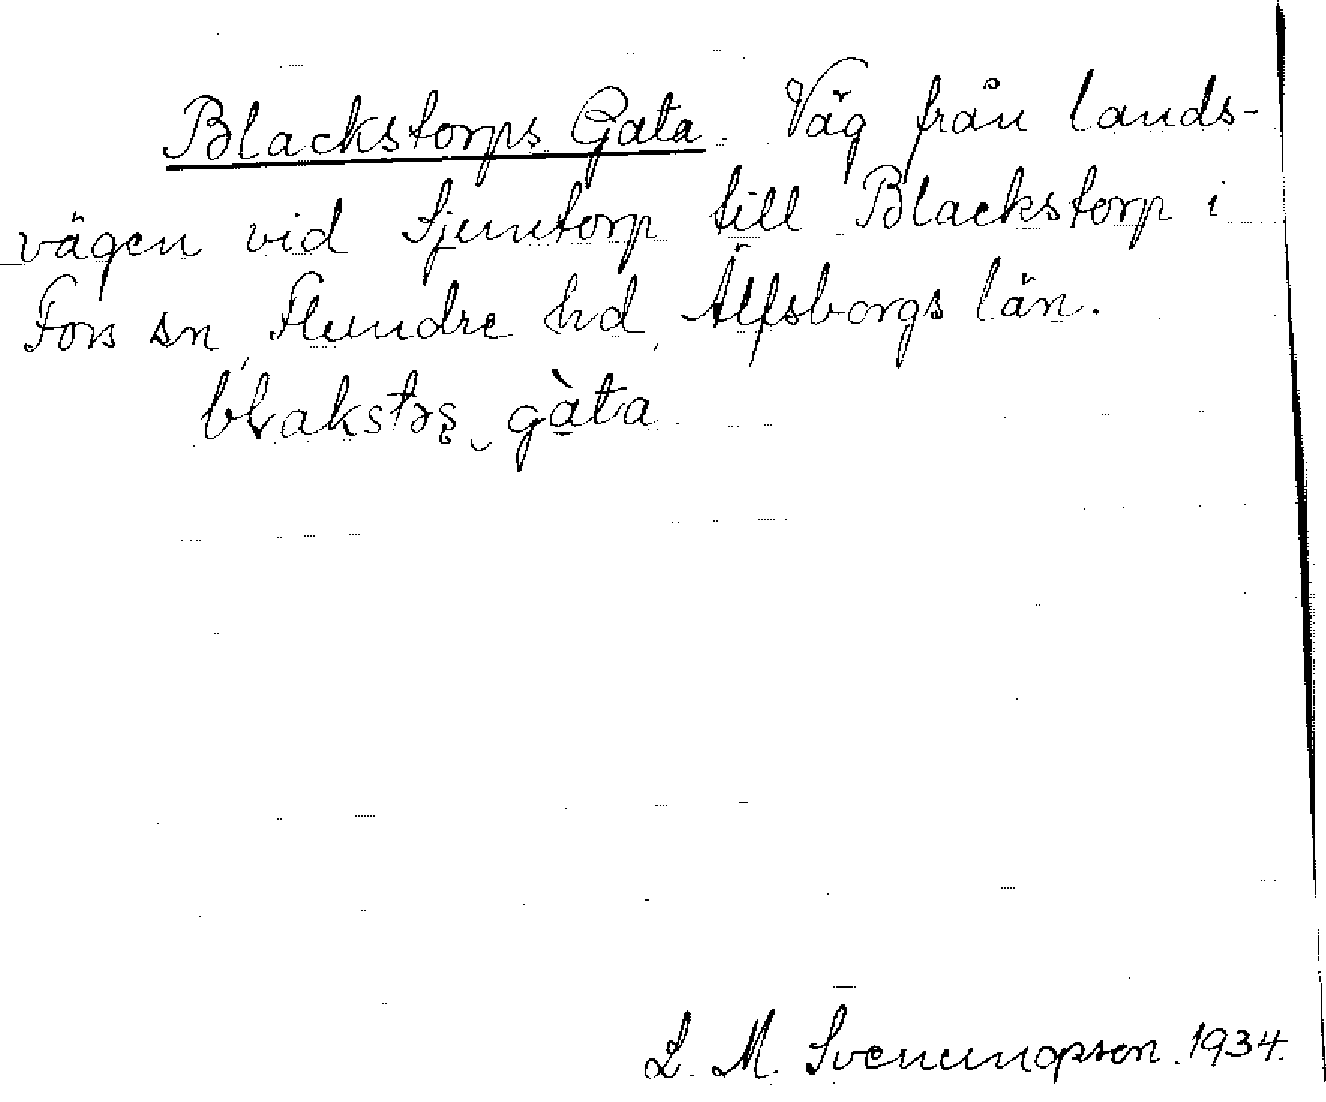 Blackstorps Gata. Väg från lands-
vägen vid Sjuntorp till Blackstorp i
Fors sn, Flundre hd, Älfsborgs län.
gàta
L. M. Svenungsson. 1934.